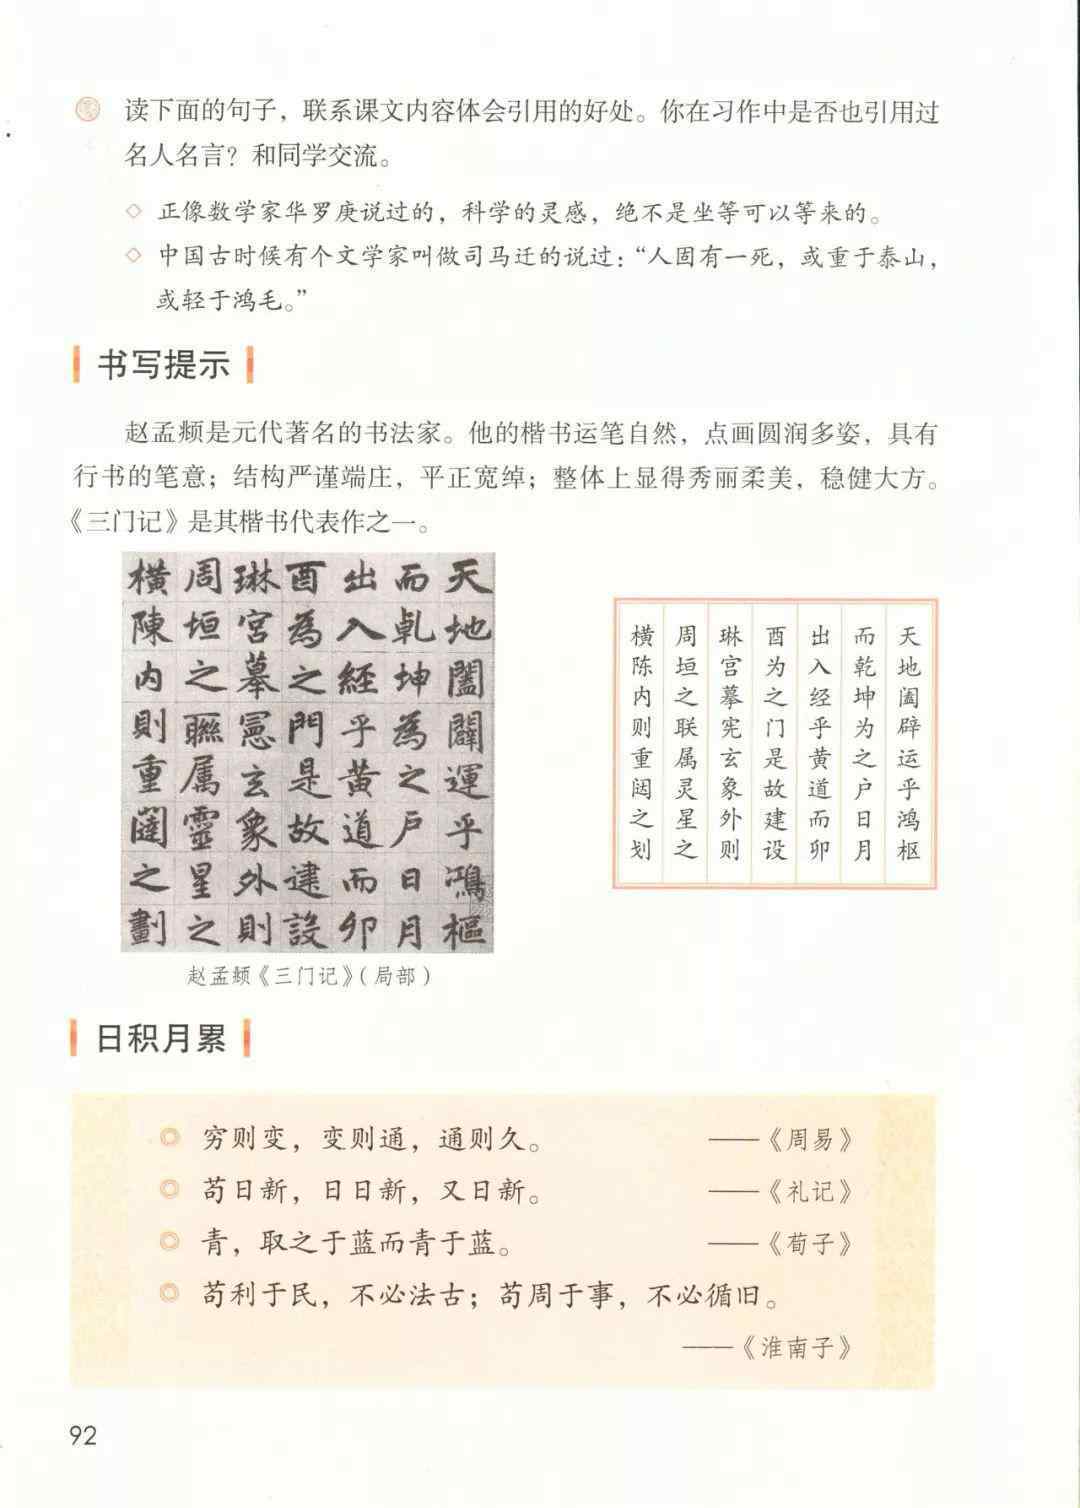 读下面的句子，联系课文内容体会引用的好处。你在习作中是否也引用过
名人名言？和同学交流。
正像数学家华罗庚说过的，科学的灵感，绝不是坐等可以等来的。
中国古时候有个文学家叫做司马迁的说过：“人固有一死，或重于泰山，
或轻于鸿毛。”
书写提示
赵孟𫖯是元代著名的书法家。他的楷书运笔自然，点画圆润多姿，具有
行书的笔意；结构严谨端庄，平正宽绰；整体上显得秀丽柔美，稳健大方。
《三门记》是其楷书代表作之一。
天地闔闢運乎鴻樞
而乹坤為之戶日月
出入經乎黄道而卯
酉為之門是故建設
琳宮摹憲玄象外則
周垣之聯属靈星之
橫陳内則重闥之劃
天地阖辟运乎鸿枢
而乾坤为之户日月
出入经乎黄道而卯
酉为之门是故建设
琳宫摹宪玄象外则
周垣之联属灵星之
横陈内则重闼之划
赵孟𫖯《三门记》（局部）
日积月累
穷则变，变则通，通则久。 ——《周易》
苟日新，日日新，又日新。 ——《礼记》
青，取之于蓝而青于蓝。 ——《荀子》
苟利于民，不必法古；苟周于事，不必循旧。
——《淮南子》
92